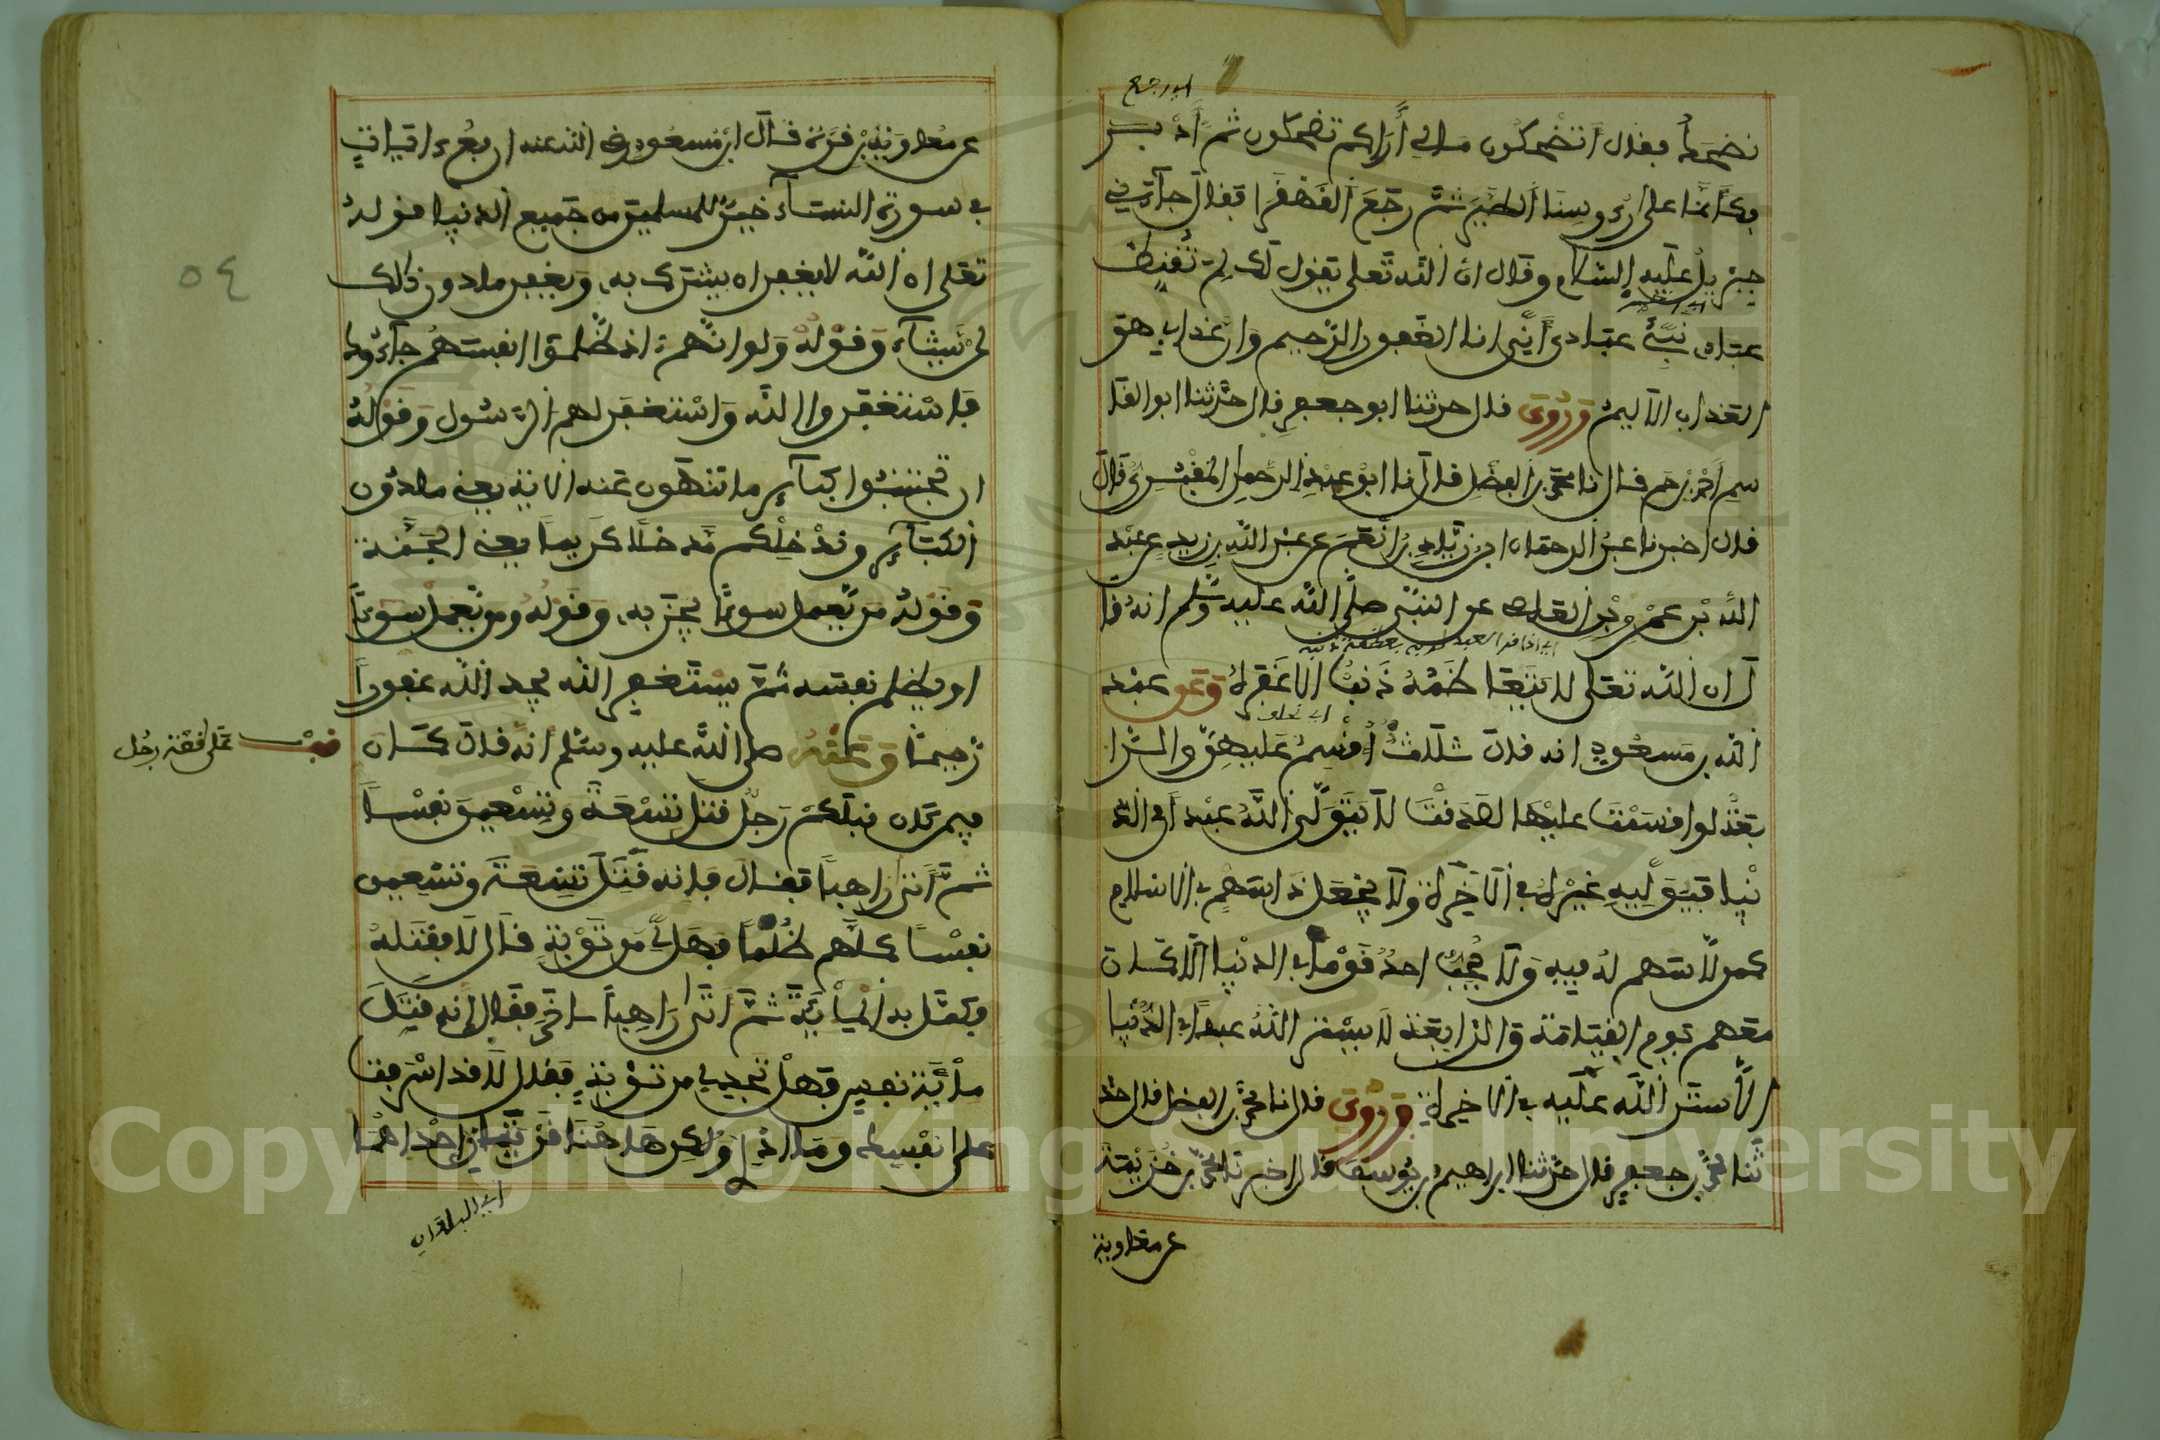 اي ورجع
نضحك فقال اتضحكون مالي أراكم تضحكون ثم أدبر
فكأنما على رءوسنا الطير ثم رجع القهقرا فقال جآءني
جبريل عليه السلام وقال ان الله تعلى يقول لك لم تقنط
عبادي نبئ عبادي أني انا الغفور الرحيم وان عذابي هو
العذاب الاليم وروى قال حدثنا ابو جعفر قال حدثنا ابو القا
سم احمد بن حم قال نا محمد بن الفضل قال نا ابو عبد الرحمن المقبري قال
قال اخبرنا عبد الرحمان ابن زياد بن انعم عن عبد الله بن يزيد عن عبد
الله بن عمرو بن العاص عن النبي صلى الله عليه وسلم انه قا
ل ان الله تعلى لا يتعاظمه ذنب الا غفره وعن عبد
الله بن مسعود انه قال ثلاث أقسم عليهن والرا
بعة لو اقسمت عليها لصدقت لا يتولى الله عبدا في الد
نيا فيوليه غيره في الآخرة ولا يجعل ذا سهم في الاسلام
كمن لا سهم له فيه ولا يحب احد قوما في الدنيا الا كان
معهم يوم القيامة والرابعة لا يستر الله عبدا في الدنيا
الا ستر الله عليه في الاخرة وروى قال نا محمد بن الفضل قال حد
ثنا محمد بن جعفر قال حدثنا ابراهيم بن يوسف قال اخبرنا محمد بن خزيمة
عن معاوية
عن معاوية بن قرة قال ابن مسعود رضي الله عنه اربع ءايات
في سورة النسآء خير للمسلمين من جميع الدنيا قوله
تعلى ان الله لا يغفر ان يشرك به ويغفر ما دون ذلك
لمن يشآء وقوله ولو انهم اذ ظلموا انفسهم جآءوك
فاستغفروا الله واستغفر لهم الرسول وقوله
ان تجتنبوا كبآئر ما تنهون عنه الاية يعني مادون
الكبآئر وندخلكم مدخلا كريما يعني الجنة
وقوله من يعمل سوءا يجز به وقوله ومن يعمل سوءا
او يظلم نفسه ثم يستغفر الله يجد الله غفورا
رحيما وعنه صلى الله عليه وسلم انه قال كان
قف على قصة رجل
فيمن كان قبلكم رجل قتل تسعة وتسعين نفسا
ثم أتى راهبا فقال فانه قتل تسعة وتسعين
نفسا كلهم ظلما فهل لي من توبة قال لا فقتله
فكمل به المائة ثم أتى راهبا ءاخر فقال إنه قتل
مائة نفس فهل تجد لي من توبة فقال لا قد اسرفت
على نفسك وما ادري ولكن هاهنا قريتان إحداهما
٥٤